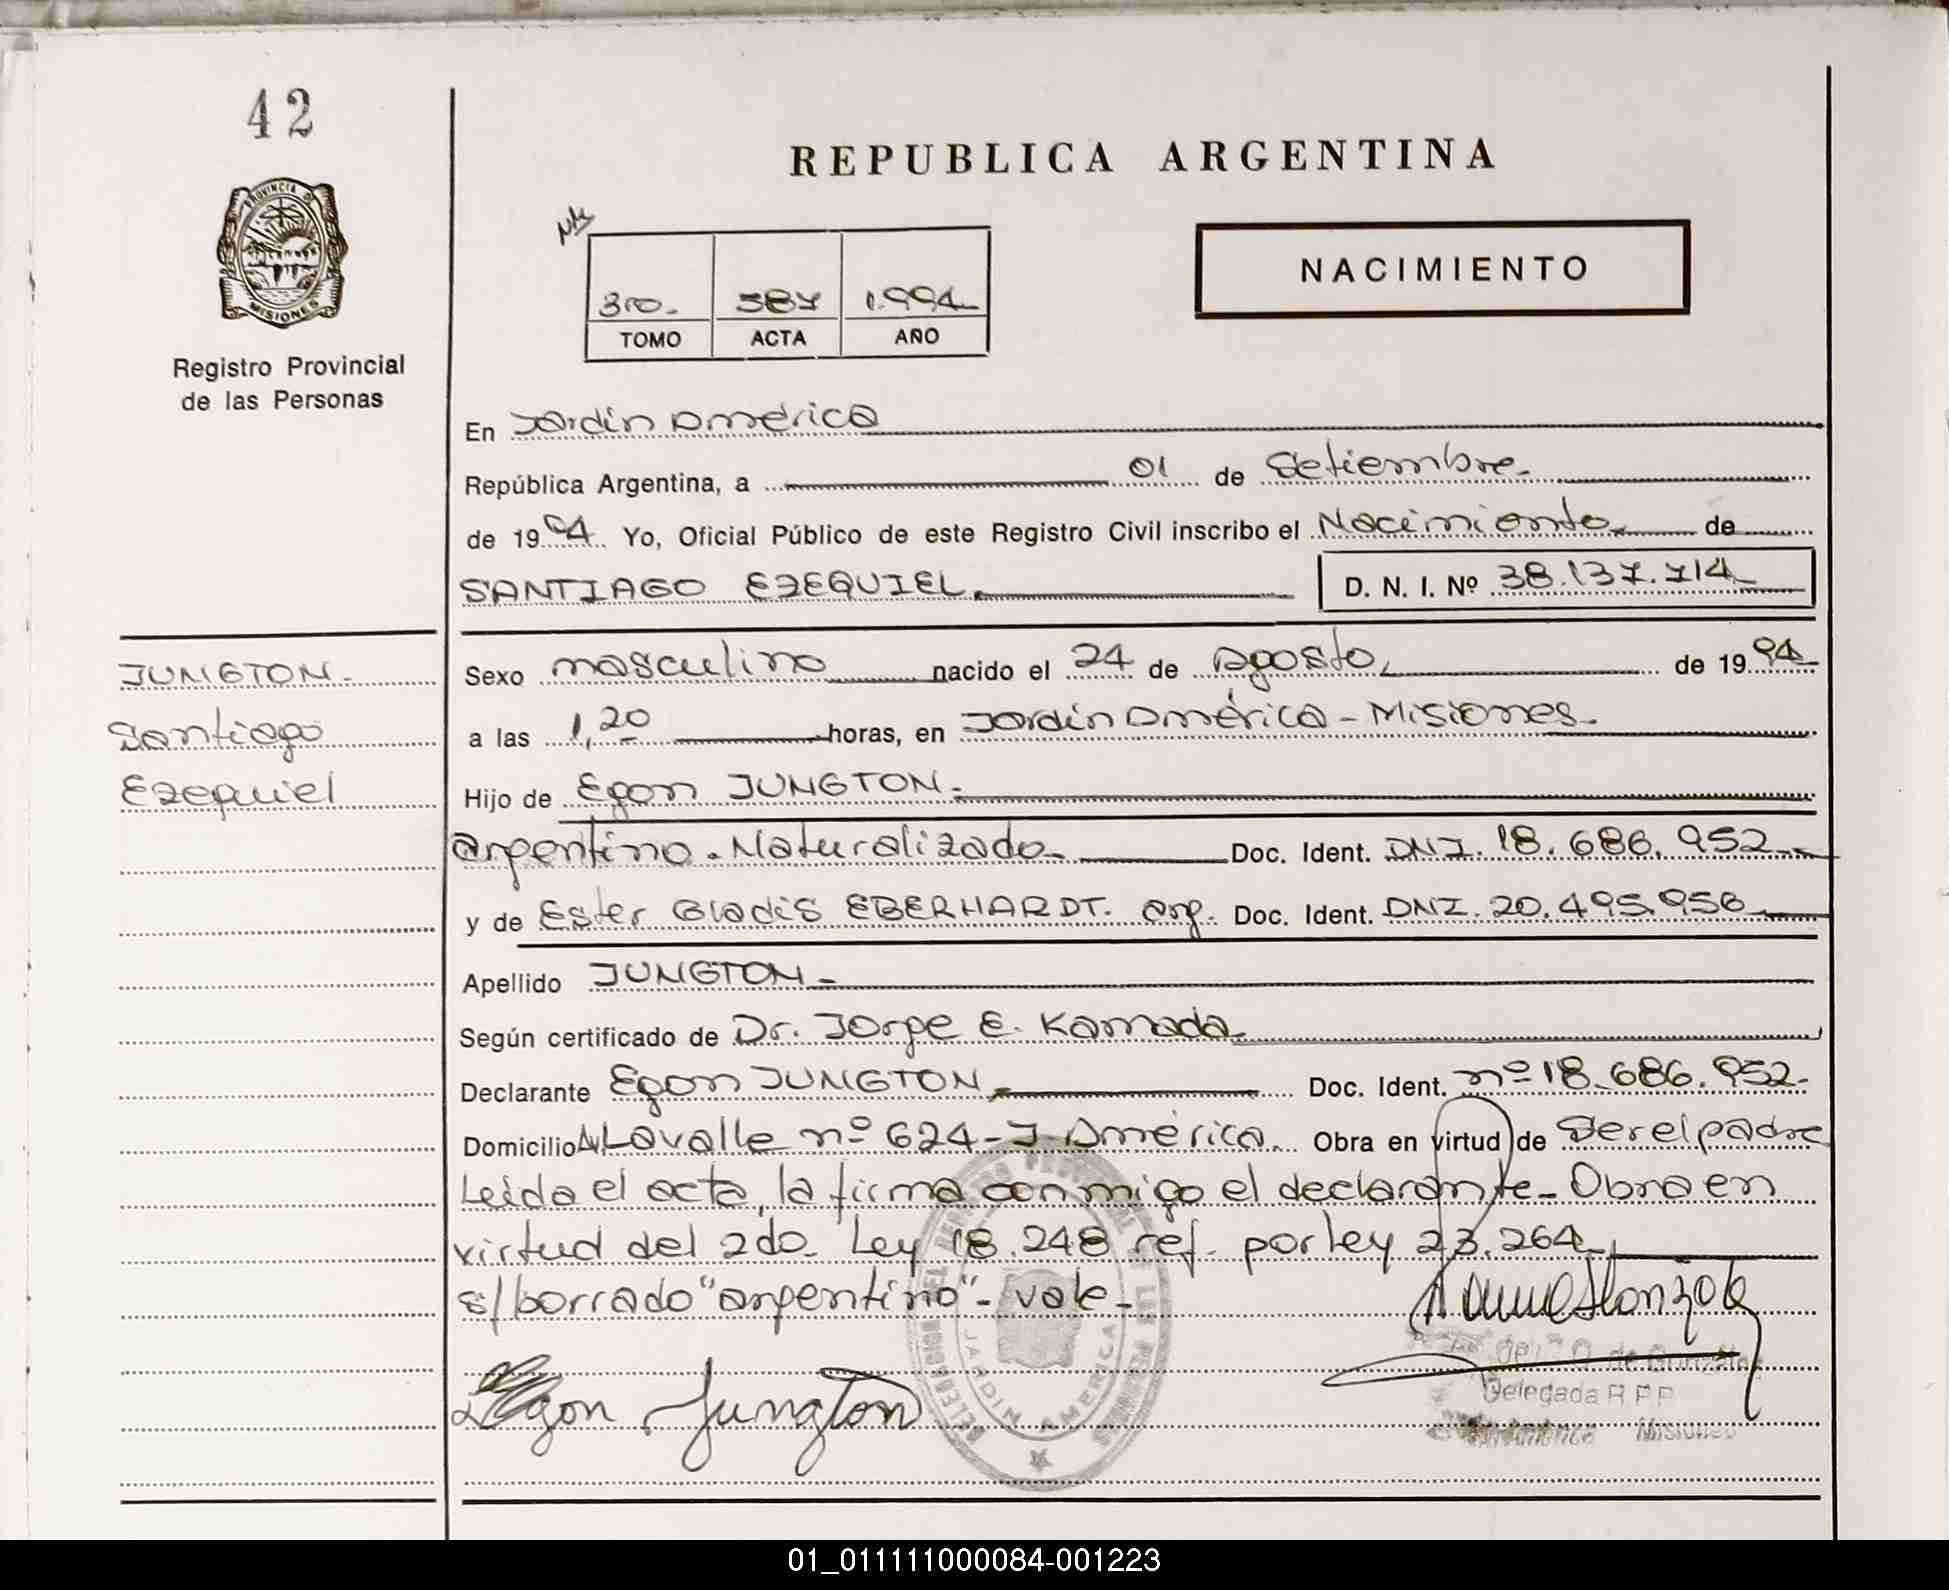 42
REPUBLICA ARGENTINA
PROVINCIA D
MISIONES
NACIMIENTO
3ro. 387 1.994
TOMO ACTA AÑO
Registro Provincial
de las Personas
En Jardín América
República Argentina, a 01 de Setiembre.
de 1994. Yo, Oficial Público de este Registro Civil inscribo el Nacimiento de
SANTIAGO EZEQUIEL. D. N. I. Nº 38.137.714
JUNGTON.
Santiago
Ezequiel
Sexo masculino nacido el 24 de Agosto, de 1994
a las 1,20 horas, en Jardín América - Misiones.
Hijo de Egon JUNGTON.
argentino. Naturalizado Doc. Ident. DNI. 18.686.952
y de Ester Gladis EBERHARDT. arg. Doc. Ident. DNI. 20.495.956
Apellido JUNGTON
Según certificado de Dr. Jorge E. Kamada
Declarante Egon JUNGTON Doc. Ident. nº 18.686.952.
Domicilio Av Lavalle nº 624 - J América. Obra en virtud de Ser el padre
Leída el acta, la firma conmigo el declarante - Obra en
virtud del 2do. Ley 18.248 ref. por ley 23.264
s/borrado "argentino" - vale -
Egon Jungton
JARDIN AMERICA
de González
Delegada R P P
América Misiones
01_011111000084-001223